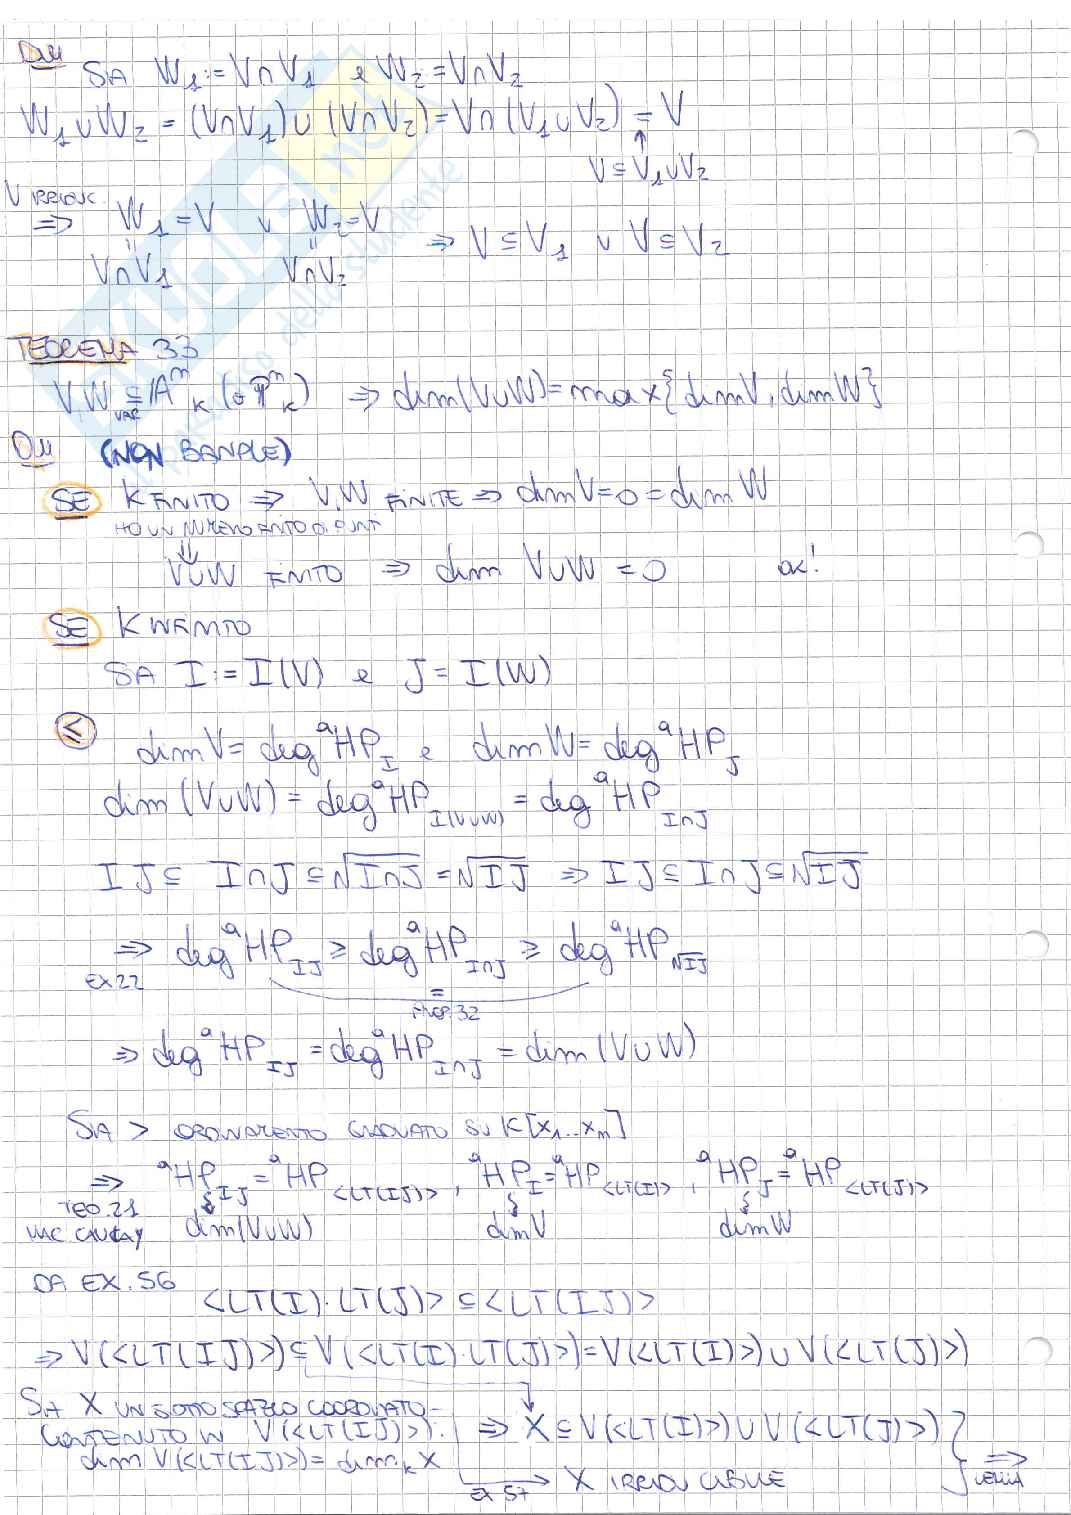 DIM
SIA W₁:=V∩V₁ e W₂:=V∩V₂
W₁∪W₂=(V∩V₁)∪(V∩V₂)=V∩(V₁∪V₂)=V
↑
V⊆V₁∪V₂
V IRRIDUC.
⇒ W₁=V ∨ W₂=V
" "
V∩V₁ V∩V₂ ⇒ V⊆V₁ ∨ V⊆V₂
TEOREMA 33
V,W ⊆ Aⁿ_K (o Pⁿ_K) ⇒ dim(V∪W)=max{dimV, dimW}
VAR
DIM (NON BANALE)
SE K FINITO ⇒ V,W FINITE ⇒ dimV=0=dimW
HO UN NUMERO FINITO DI PUNTI
⇓
V∪W FINITO ⇒ dim V∪W=0 ok!
SE K INFINITO
SIA I:=I(V) e J=I(W)
≤ dimV=deg ᵃHP_I e dimW=deg ᵃHP_J
dim(V∪W)=deg ᵃHP_I(V∪W)=deg ᵃHP_I∩J
IJ⊆ I∩J⊆√(I∩J)=√(IJ) ⇒ IJ⊆I∩J⊆√(IJ)
⇒ deg ᵃHP_IJ ≥ deg ᵃHP_I∩J ≥ deg ᵃHP_√(IJ)
EX 22
=
PROP. 32
⇒ deg ᵃHP_IJ = deg ᵃHP_I∩J = dim(V∪W)
SIA > ORDINAMENTO GRADUATO SU K[x₁...xₙ]
⇒ ᵃHP_IJ=ᵃHP_<LT(IJ)>, ᵃHP_I=ᵃHP_<LT(I)>, ᵃHP_J=ᵃHP_<LT(J)>
TEO.21
MAC CAULAY dim(V∪W) dimV dimW
DA EX.56
<LT(I)·LT(J)>⊆<LT(IJ)>
⇒V(<LT(IJ)>)⊆V(<LT(I)·LT(J)>)=V(<LT(I)>)∪V(<LT(J)>)
SIA X UN SOTTOSPAZIO COORDINATO
CONTENUTO IN V(<LT(IJ)>): ⇒ X⊆V(<LT(I)>)∪V(<LT(J)>)
dim V(<LT(IJ)>)=dim_K X
EX 57 → X IRRIDUCIBILE
⇒
LEMMA